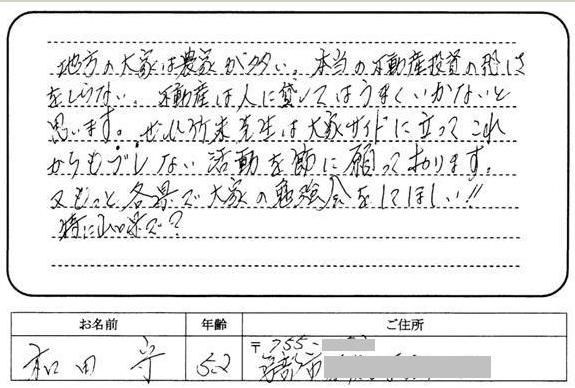 地方の大家は農家が多い。本当の不動産投資の恐しさ
をしらない。不動産は人に貸してはうまくいかないと
思います。ぜひ竹末先生は大家サイドに立ってこれ
からもブレない活動を節に願っております。
又もっと各県で大家の勉強会をしてほしい!!
特に山口県で?
お名前 年齢 ご住所
和田 守 52 〒755-
宇部市